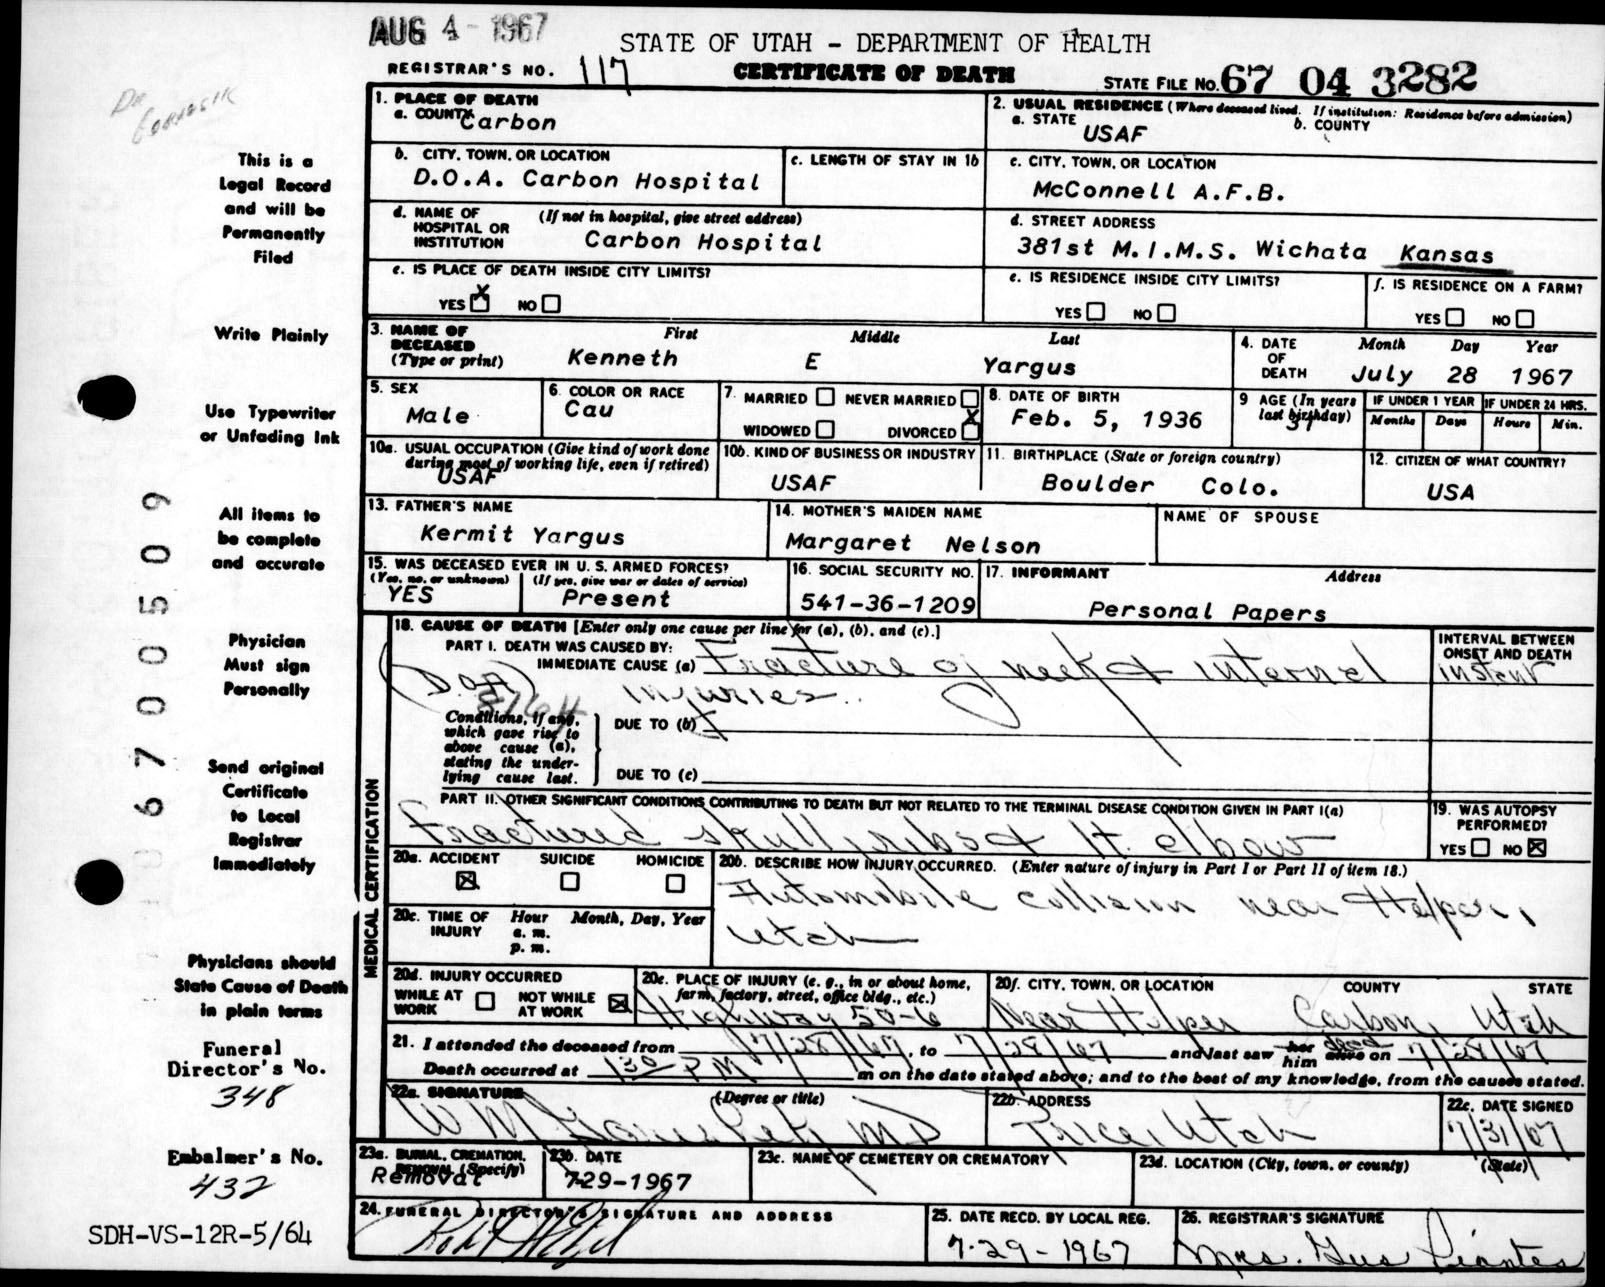 AUG 4 - 1967
STATE OF UTAH - DEPARTMENT OF HEALTH
REGISTRAR'S NO. 117
CERTIFICATE OF DEATH
STATE FILE NO. 67 04 3282
1. PLACE OF DEATH
a. COUNTY Carbon
2. USUAL RESIDENCE (Where deceased lived. If institution: Residence before admission)
a. STATE USAF b. COUNTY
b. CITY, TOWN, OR LOCATION
D.O.A. Carbon Hospital
c. LENGTH OF STAY IN 1b
c. CITY, TOWN, OR LOCATION
McConnell A.F.B.
d. NAME OF HOSPITAL OR INSTITUTION (If not in hospital, give street address)
Carbon Hospital
d. STREET ADDRESS
381st M.I.M.S. Wichata Kansas
e. IS PLACE OF DEATH INSIDE CITY LIMITS?
YES X NO
e. IS RESIDENCE INSIDE CITY LIMITS?
YES NO
f. IS RESIDENCE ON A FARM?
YES NO
3. NAME OF DECEASED (Type or print)
First Middle Last
Kenneth E Yargus
4. DATE OF DEATH Month Day Year
July 28 1967
5. SEX
Male
6. COLOR OR RACE
Cau
7. MARRIED NEVER MARRIED
WIDOWED DIVORCED X
8. DATE OF BIRTH
Feb. 5, 1936
9 AGE (In years last birthday)
31
IF UNDER 1 YEAR
Months Days
IF UNDER 24 HRS.
Hours Min.
10a. USUAL OCCUPATION (Give kind of work done during most of working life, even if retired)
USAF
10b. KIND OF BUSINESS OR INDUSTRY
USAF
11. BIRTHPLACE (State or foreign country)
Boulder Colo.
12. CITIZEN OF WHAT COUNTRY?
USA
13. FATHER'S NAME
Kermit Yargus
14. MOTHER'S MAIDEN NAME
Margaret Nelson
NAME OF SPOUSE
15. WAS DECEASED EVER IN U. S. ARMED FORCES?
(Yes, no, or unknown) (If yes, give war or dates of service)
YES Present
16. SOCIAL SECURITY NO.
541-36-1209
17. INFORMANT Address
Personal Papers
MEDICAL CERTIFICATION
18. CAUSE OF DEATH [Enter only one cause per line for (a), (b), and (c).]
PART I. DEATH WAS CAUSED BY:
IMMEDIATE CAUSE (a) Fracture of neck & internal
(D.O.A) injuries.
INTERVAL BETWEEN ONSET AND DEATH
instant
Conditions, if any, which gave rise to above cause (a), stating the underlying cause last.
DUE TO (b)
DUE TO (c)
PART II. OTHER SIGNIFICANT CONDITIONS CONTRIBUTING TO DEATH BUT NOT RELATED TO THE TERMINAL DISEASE CONDITION GIVEN IN PART I(a)
Fractured skull, ribs & lt. elbow
19. WAS AUTOPSY PERFORMED?
YES NO X
20a. ACCIDENT SUICIDE HOMICIDE
X
20b. DESCRIBE HOW INJURY OCCURRED. (Enter nature of injury in Part I or Part II of item 18.)
Automobile collision near Helper,
Utah
20c. TIME OF INJURY Hour Month, Day, Year
a. m.
p. m.
20d. INJURY OCCURRED
WHILE AT WORK NOT WHILE AT WORK X
20e. PLACE OF INJURY (e. g., in or about home, farm, factory, street, office bldg., etc.)
Highway 50-6
20f. CITY, TOWN, OR LOCATION COUNTY STATE
Near Helper Carbon, Utah
21. I attended the deceased from 7/28/67, to 7/28/67 and last saw her him alive dead on 7/28/67
Death occurred at 1 30 P M m on the date stated above; and to the best of my knowledge, from the causes stated.
22a. SIGNATURE (Degree or title)
W M MD
22b. ADDRESS
Price, Utah
22c. DATE SIGNED
7/31/67
23a. BURIAL, CREMATION, REMOVAL (Specify)
Removal
23b. DATE
7-29-1967
23c. NAME OF CEMETERY OR CREMATORY
23d. LOCATION (City, town, or county) (State)
24. FUNERAL DIRECTOR'S SIGNATURE AND ADDRESS
25. DATE RECD. BY LOCAL REG.
7-29-1967
26. REGISTRAR'S SIGNATURE
Mrs. Gus
This is a
Legal Record
and will be
Permanently
Filed
Write Plainly
Use Typewriter
or Unfading Ink
All items to
be complete
and accurate
Physician
Must sign
Personally
Send original
Certificate
to Local
Registrar
Immediately
Physicians should
State Cause of Death
in plain terms
Funeral
Director's No.
348
Embalmer's No.
432
SDH-VS-12R-5/64
067000509